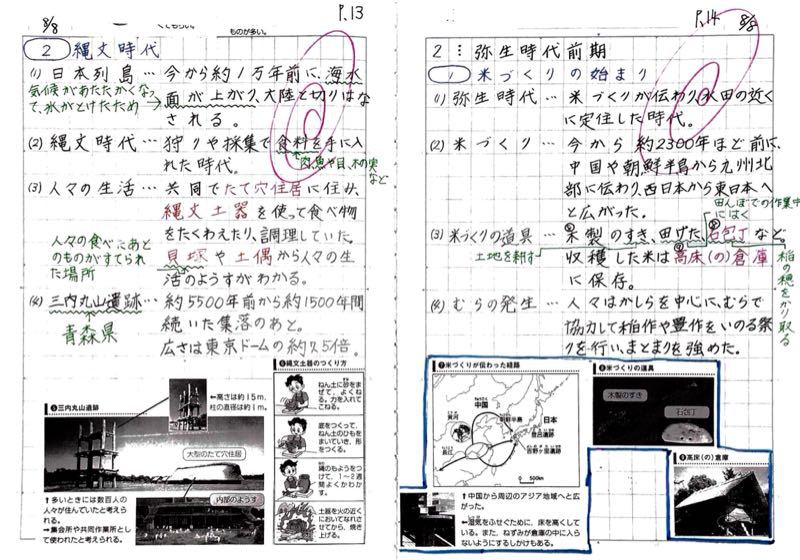 8/8
P.13
ものが多い。
2 縄文時代
(1) 日本列島…今から約1万年前に、海水
面が上がり、大陸と切りはな
される。
気候があたたかくなっ
て、氷がとけたため
(2) 縄文時代…狩りや採集で食料を手に入
れた時代。
肉、魚や貝、木の実
など
(3) 人々の生活…共同でたて穴住居に住み、
縄文土器を使って食べ物
をたくわえたり、調理していた。
貝塚や土偶から人々の生
活のようすがわかる。
人々の食べたあと
のものがすてられ
た場所
(4) 三内丸山遺跡…約5500年前から約1500年間
続いた集落のあと。
広さは東京ドームの約7.5倍。
青森県
⑤三内丸山遺跡
←高さは約15m、
柱の直径は約1m。
大型のたて穴住居
内部のようす
↑多いときには数百人の
人々が住んでいたと考えら
れる。
→集会所や共同作業所とし
て使われたと考えられる。
⑥縄文土器のつくり方
ねん土に砂をま
ぜて、よくね
る。力を入れて
こねる。
底をつくって、
ねん土のひもを
まいていき、形
をつくる。
縄のもようをつ
けて、1〜2週
間よくかわか
す。
土器を火の近く
においてなれさ
せてから、焼き
上げる。
P.14
8/8
2…弥生時代前期
1 米づくりの始まり
(1) 弥生時代…米づくりが伝わり、水田の近く
に定住した時代。
(2) 米づくり…今から約2300年ほど前に、
中国や朝鮮半島から九州北
部に伝わり、西日本から東日本へ
と広がった。
田んぼでの作業中
にはく
(3) 米づくりの道具…木製のすき、田げた、石包丁など。
土地を耕す
稲の穂をかり取る
収穫した米は高床(の)倉庫
に保存。
(4) むらの発生…人々はかしらを中心に、むらで
協力して稲作や豊作をいのる祭
りを行い、まとまりを強めた。
⑦米づくりが伝わった経路
中国
黄河
長江
朝鮮半島
日本
登呂遺跡
吉野ヶ里遺跡
0 500km
↑中国から周辺のアジア地域へと広
がった。
←湿気をふせぐために、床を高くしてい
る。また、ねずみが倉庫の中に入ら
ないようにするしかけもある。
⑧米づくりの道具
木製のすき
石包丁
⑨高床(の)倉庫